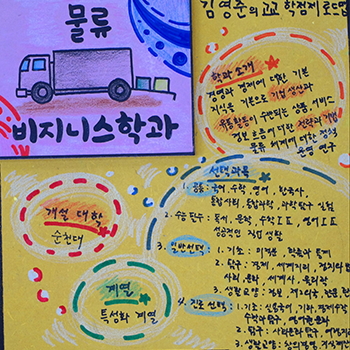 물류
비지니스학과
김영준의 고교 학점제 로드맵
학과 소개
경영과 경제에 대한 기본
지식을 기본으로 기업 생산과
유통활동이 수반되는 상품 서비스
정보 흐름에 대한 전략과 개발
물류 체계에 대한 정책
운영 연구
개설 대학
순천대
계열
특성화 계열
선택과목
1. 공통 : 국어, 수학, 영어, 한국사,
통합사회, 통합과학, 과학탐구 실험
2. 수능 필수 : 독서, 문학, 수학 I II, 영어 I II
성공적인 직업 생활
3. 일반선택 : 1. 기초 : 미적분, 확률과 통계
2. 탐구 : 경제, 세계지리, 정치와 법
사회, 문화, 세계사, 물리학
3. 생활 교양 : 일본, 제2외국
4. 진로 선택 : 1. 기초 : 실용국어, 기하, 경제수학
영어권 문화
2. 탐구 : 사회문제 탐구, 여행지리
3. 생활교양 : 창의경영, 지식재산